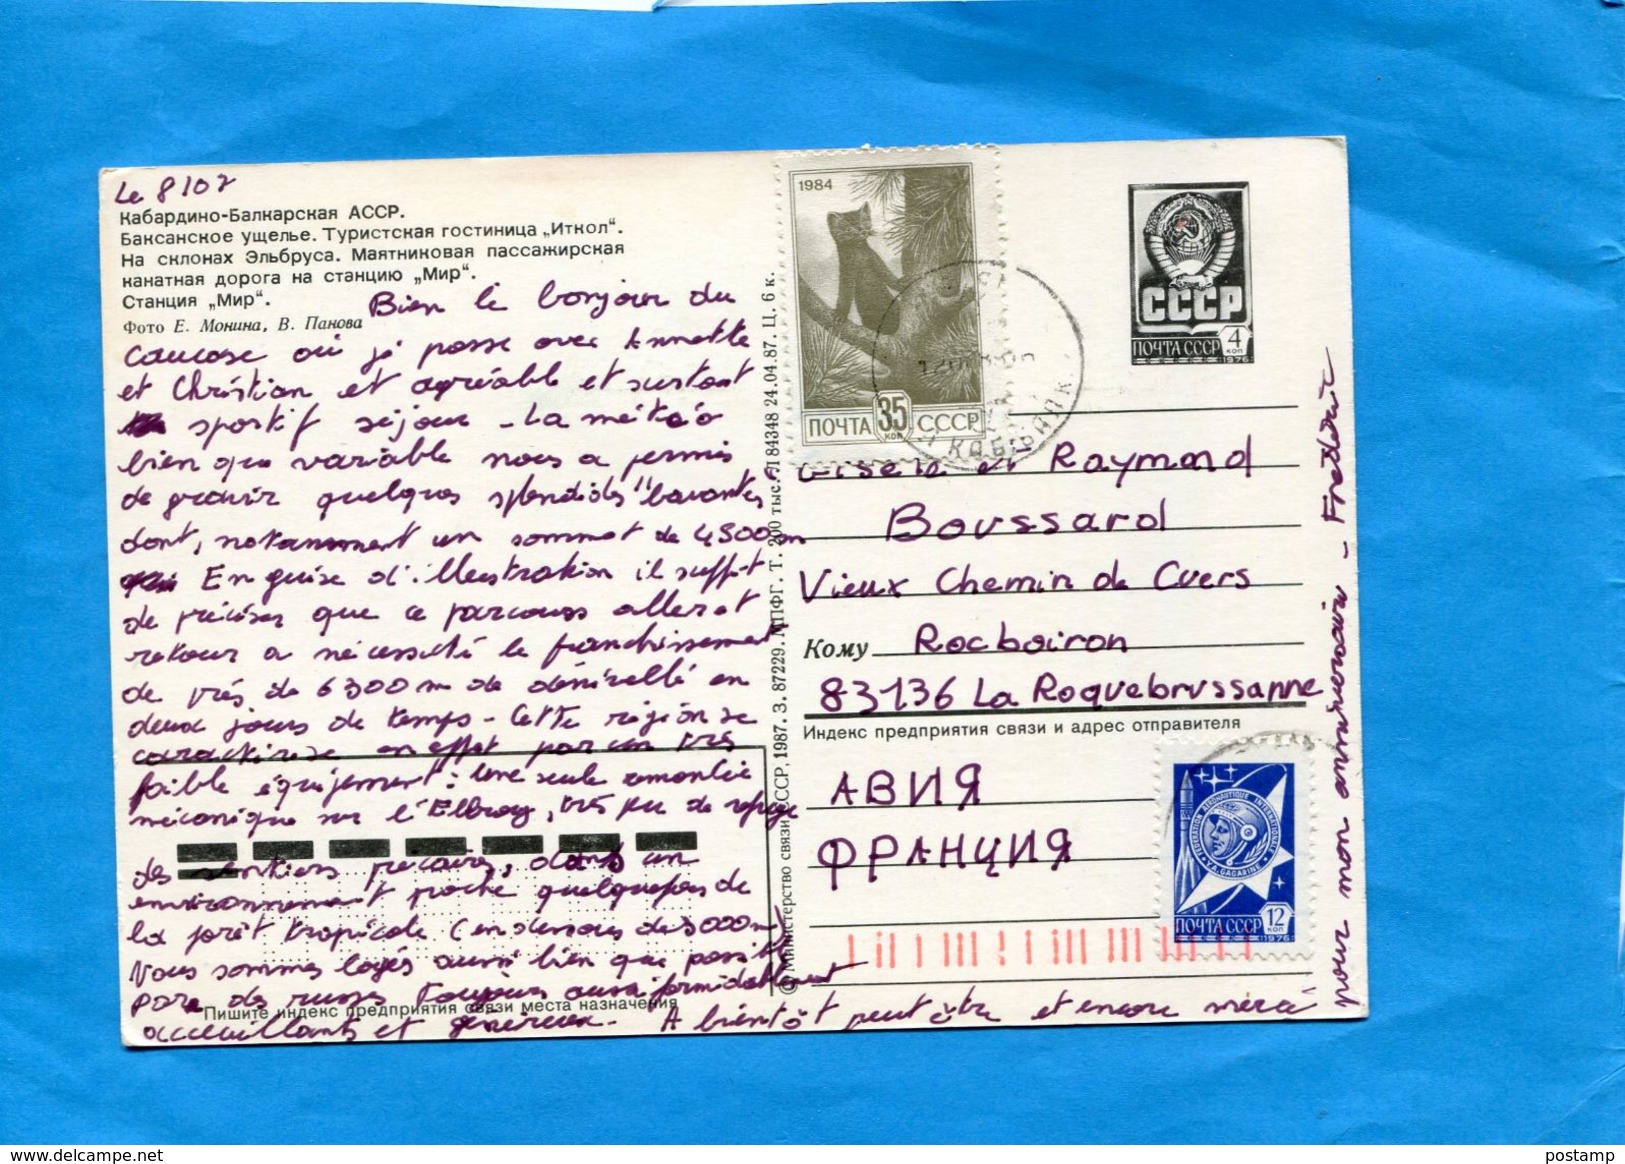 Le 8/07
Кабардино-Балкарская АССР.
Баксанское ущелье. Туристская гостиница „Иткол“.
На склонах Эльбруса. Маятниковая пассажирская
канатная дорога на станцию „Мир“.
Станция „Мир“.
Фото Е. Монина, В. Панова
Bien le bonjour du
caucase où j'ai passé avec Annette
et Christian et agréable et surtout
sportif séjour - La météo
bien que variable nous a permis
de gravir quelques splendides "bavantes"
dont, notamment un sommet de 4500m
En guise d'illustration il suffit
de préciser que ce parcours aller et
retour a nécessité le franchissement
de près de 6300m de dénivellé en
deux jours de temps - Cette région se
caractérise en effet par un très
faible équipement : Une seule remontée
mécanique sur l'Elbrouz, très peu de refuge
des sentiers précaires, dans un
environnement proche quelquefois de
la forêt tropicale (en dessous de 3000m)
Nous sommes logés aussi bien que possible
par des russes toujours aussi formidablement
accueillants et généreux. A bientôt peut être et encore merci
pour mon anniversaire - Frédéric
Пишите индекс предприятия связи места назначения
© Министерство связи СССР, 1987. З. 87229. МПФГ. Т. 200 тыс. 184348 24.04.87. Ц. 6 к.
1984
ПОЧТА 35 коп СССР
СССР
4 коп
ПОЧТА СССР 1976
Gisèle et Raymond
Boussard
Vieux Chemin de Cuers
Кому Rocbaron
83136 La Roquebrussanne
Индекс предприятия связи и адрес отправителя
АВИЯ
ФРАНЦИЯ
FEDERATION AERONAUTIQUE INTERNATIONALE
Y.A. GAGARINE
ПОЧТА СССР 12 коп
1976
postamp.
postamp